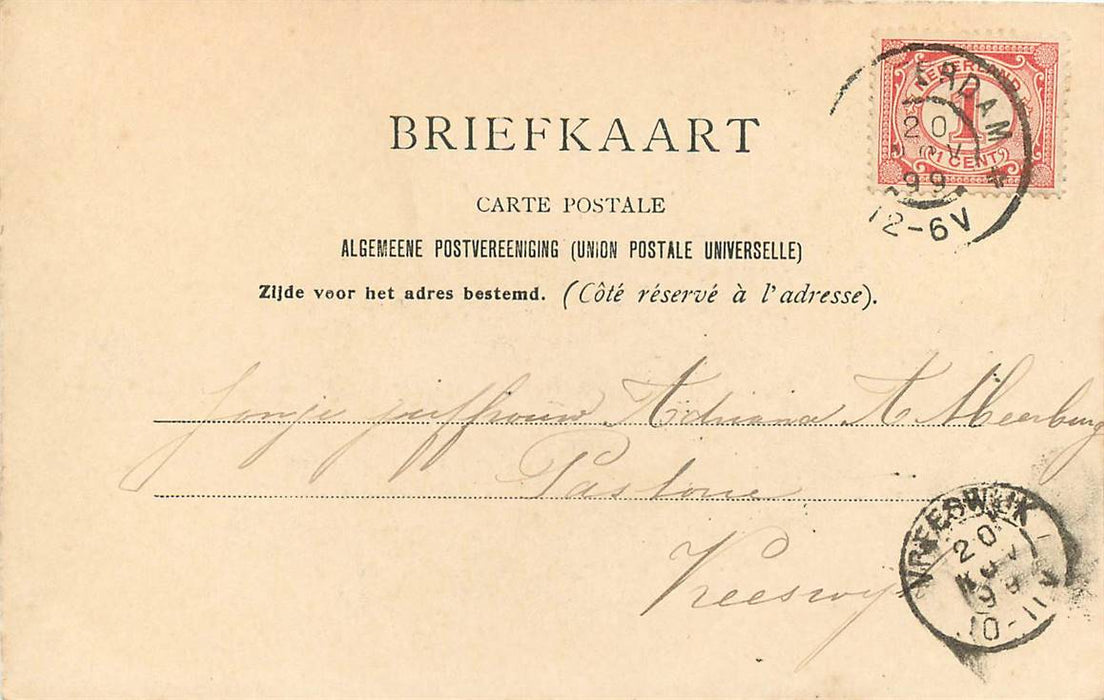 BRIEFKAART
CARTE POSTALE
ALGEMEENE POSTVEREENIGING (UNION POSTALE UNIVERSELLE)
Zijde voor het adres bestemd. (Côté réservé à l'adresse).
NEDERLAND
1
1 CENT
ERDAM
20
99
12-6V
Jonge juffrouw Adriana A Meerburg
Pastorie
Vreeswijk
VREESWIJK
20
NOV
99
10-11V